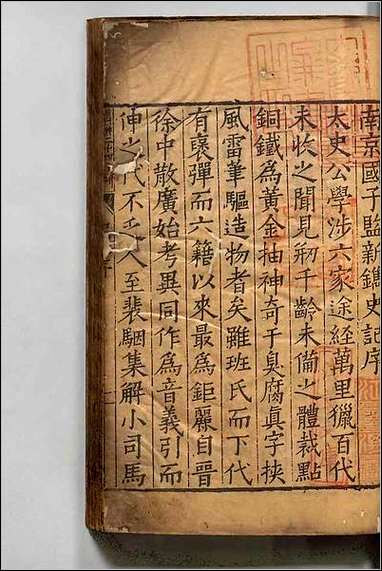 南京國子監新鐫史記序
太史公學涉六家途經萬里獵百代
未收之聞見刱千齡未備之體裁點
銅鐵爲黃金抽神奇于臭腐眞字挾
風雷筆驅造物者矣雖班氏而下代
有褒彈而六籍以來最爲鉅麗自晉
徐中散廣始考異同作爲音義引而
伸之代不乏人至裴駰集解小司馬